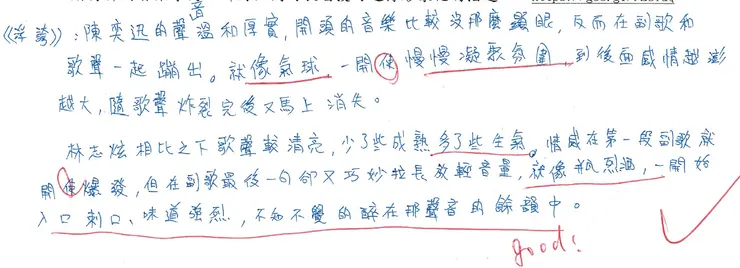 《浮誇》:陳奕迅的聲音溫和厚實,開頭的音樂比較沒那麼顯眼,反而在副歌和
歌聲一起蹦出。就像氣球,一開使慢慢凝聚氛圍,到後面感情越澎
越大,隨歌聲炸裂完後又馬上消失。
林志炫相比之下歌聲較清亮,少了些成熟多了些生氣。情感在第一段副歌就
開使爆發,但在副歌最後一句卻又巧妙拉長放輕音量,就像瓶烈酒,一開始
入口刺口、味道強烈,不知不覺的醉在那聲音的餘韻中。
good!